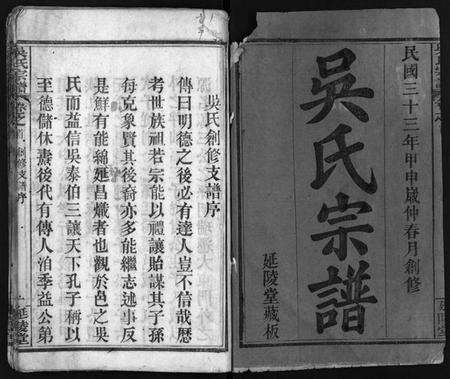 民國三十三年甲申歲仲春月創修
吳氏宗譜
延陵堂藏板
吳氏創修支譜序
傳曰明德之後必有達人豈不信哉歷
考世族祖若宗能以禮讓貽謀其子孫
每克象賢其後裔亦多能繼志述事反
是鮮有能綿延昌熾者也觀於邑之吳
氏而益信吳泰伯三讓天下孔子稱以
至德儲休燾後代有傳人洎季益公第
吳氏宗譜
創修支譜序
一 延陵堂